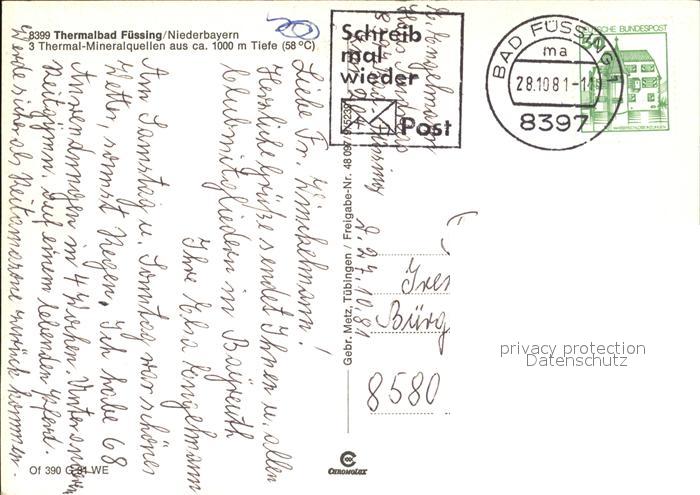 8399 Thermalbad Füssing/Niederbayern
3 Thermal-Mineralquellen aus ca. 1000 m Tiefe (58 °C)
Schreib
mal
wieder
Post
BAD FÜSSING 1
ma
28.10 81-11
8397
DEUTSCHE BUNDESPOST
Liebe Fr. Winkelmann!
Herrliche Grüße sendet Ihnen u. allen
Clubmitgliedern in Bayreuth
Ihre Elsa Engelmann
Am Samstag u. Sonntag war schönes
Wetter, sonst Regen. Ich habe 68
Anwendungen in 4 Wochen. Unter anderem
Reitgymn. auf einem lebenden Pferd.
Werde sicher als Reitamazone zurück kommen.
Engelmann
Füssing
d. 27.10.81
Gebr. Metz, Tübingen / Freigabe-Nr. 48 097
Bürg
8580
privacy protection
Datenschutz
Of 390 G 81 WE
CHROMOLUX